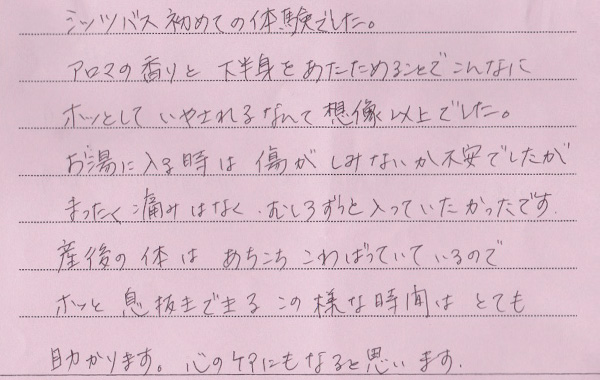 シッツバス初めての体験でした。
アロマの香りと下半身をあたためることでこんなに
ホッとしていやされるなんて想像以上でした。
お湯に入る時は傷がしみないか不安でしたが
まったく痛みはなく、むしろずっと入っていたかったです。
産後の体はあちこちこわばっていているので
ホッと息抜きできるこの様な時間はとても
助かります。心のケアにもなると思います。